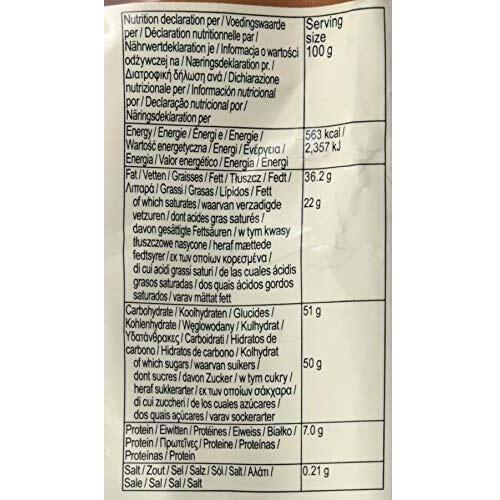 Nutrition declaration per / Voedingswaarde
per / Déclaration nutritionnelle par /
Nährwertdeklaration je / Informacja o wartości
odżywczej na / Næringsdeklaration pr. /
Διατροφική δήλωση ανά / Dichiarazione
nutrizionale per / Información nutricional
por / Declaração nutricional por /
Näringsdeklaration per
Serving
size
100 g
Energy / Energie / Énergie / Energie /
Wartość energetyczna / Energi / Ενέργεια /
Energia / Valor energético / Energia / Energi
563 kcal /
2,357 kJ
Fat / Vetten / Graisses / Fett / Tłuszcz / Fedt /
Λιπαρά / Grassi / Grasas / Lípidos / Fett
36.2 g
of which saturates / waarvan verzadigde
vetzuren / dont acides gras saturés /
davon gesättigte Fettsäuren / w tym kwasy
tłuszczowe nasycone / heraf mættede
fedtsyrer / εκ των οποίων κορεσμένα /
di cui acidi grassi saturi / de las cuales ácidis
grasos saturadas / dos quais ácidos gordos
saturados / varav mättat fett
22 g
Carbohydrate / Koolhydraten / Glucides /
Kohlenhydrate / Węglowodany / Kulhydrat /
Υδατάνθρακες / Carboidrati / Hidratos de
carbono / Hidratos de carbono / Kolhydrat
51 g
of which sugars / waarvan suikers /
dont sucres / davon Zucker / w tym cukry /
heraf sukkerarter / εκ των οποίων σάκχαρα /
di cui zuccheri / de los cuales azúcares /
dos quais açúcares / varav sockerarter
50 g
Protein / Eiwitten / Protéines / Eiweiss / Białko /
Protein / Πρωτεΐνες / Proteine / Proteínas /
Proteínas / Protein
7.0 g
Salt / Zout / Sel / Salz / Sól / Salt / Αλάτι /
Sale / Sal / Sal / Salt
0.21 g